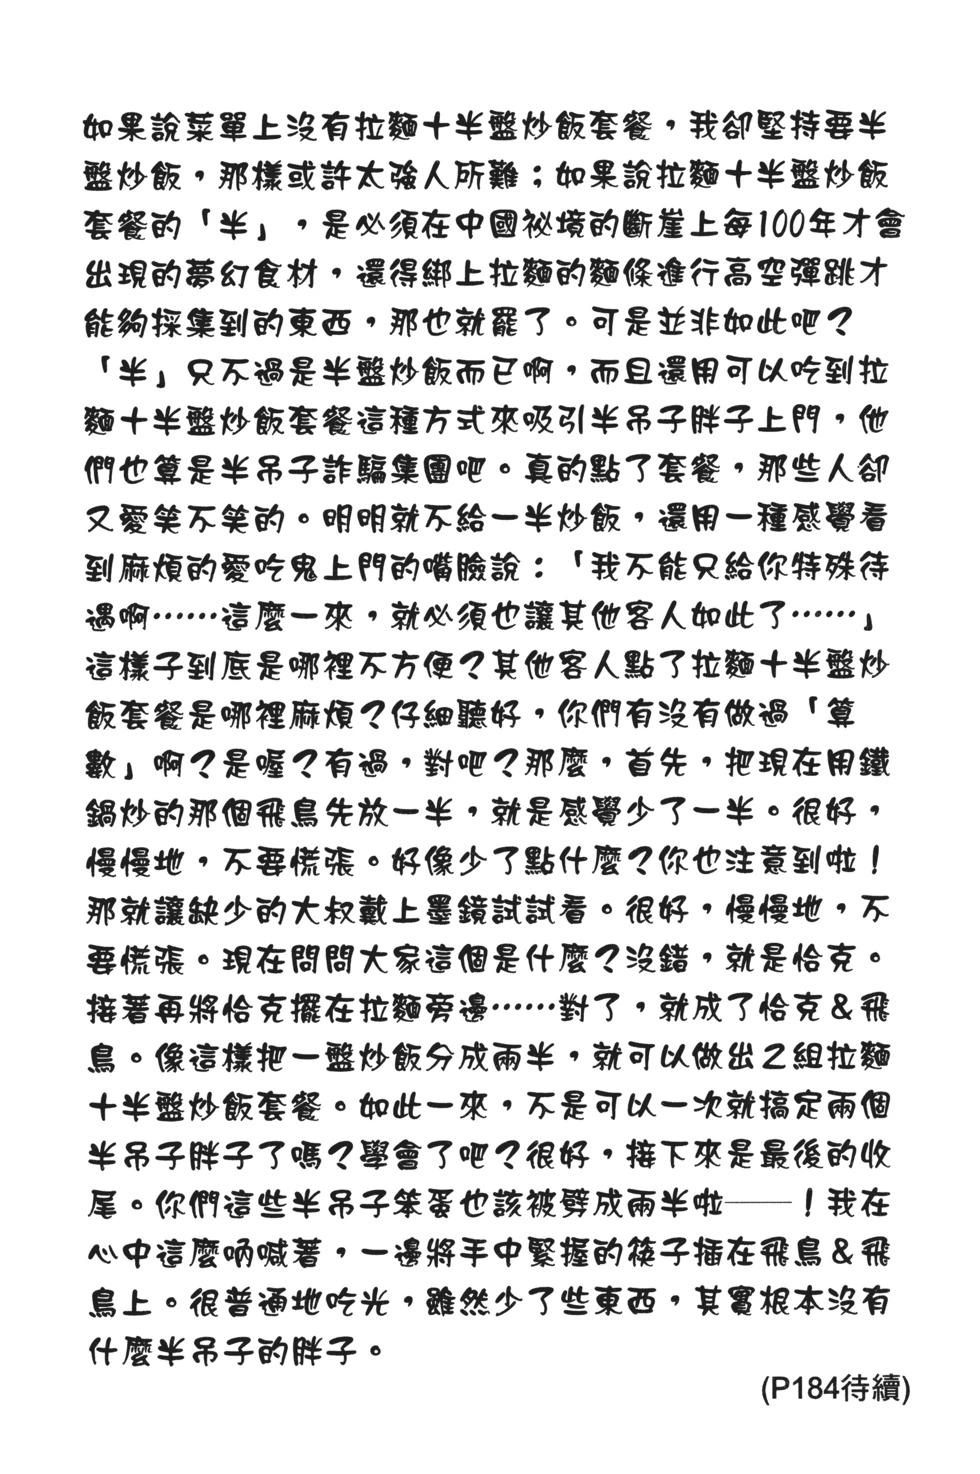 如果說菜單上沒有拉麵十半盤炒飯套餐，我卻堅持要半
盤炒飯，那樣或許太強人所難；如果說拉麵十半盤炒飯
套餐的「半」，是必須在中國祕境的斷崖上每100年才會
出現的夢幻食材，還得綁上拉麵的麵條進行高空彈跳才
能夠採集到的東西，那也就罷了。可是並非如此吧？
「半」只不過是半盤炒飯而已啊，而且還用可以吃到拉
麵十半盤炒飯套餐這種方式來吸引半吊子胖子上門，他
們也算是半吊子詐騙集團吧。真的點了套餐，那些人卻
又愛笑不笑的。明明就不給一半炒飯，還用一種感覺看
到麻煩的愛吃鬼上門的嘴臉說：「我不能只給你特殊待
遇啊……這麼一來，就必須也讓其他客人如此了……」
這樣子到底是哪裡不方便？其他客人點了拉麵十半盤炒
飯套餐是哪裡麻煩？仔細聽好，你們有沒有做過「算
數」啊？是喔？有過，對吧？那麼，首先，把現在用鐵
鍋炒的那個飛鳥先放一半，就是感覺少了一半。很好，
慢慢地，不要慌張。好像少了點什麼？你也注意到啦！
那就讓缺少的大叔戴上墨鏡試試看。很好，慢慢地，不
要慌張。現在問問大家這個是什麼？沒錯，就是恰克。
接著再將恰克擺在拉麵旁邊……對了，就成了恰克＆飛
鳥。像這樣把一盤炒飯分成兩半，就可以做出2組拉麵
十半盤炒飯套餐。如此一來，不是可以一次就搞定兩個
半吊子胖子了嗎？學會了吧？很好，接下來是最後的收
尾。你們這些半吊子笨蛋也該被劈成兩半啦——！我在
心中這麼吶喊著，一邊將手中緊握的筷子插在飛鳥＆飛
鳥上。很普通地吃光，雖然少了些東西，其實根本沒有
什麼半吊子的胖子。
(P184待續)